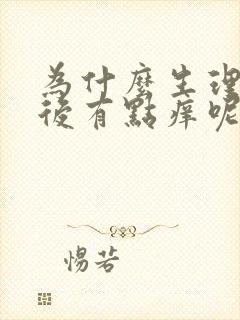 為什麼生理
後有點痒呢
惕若